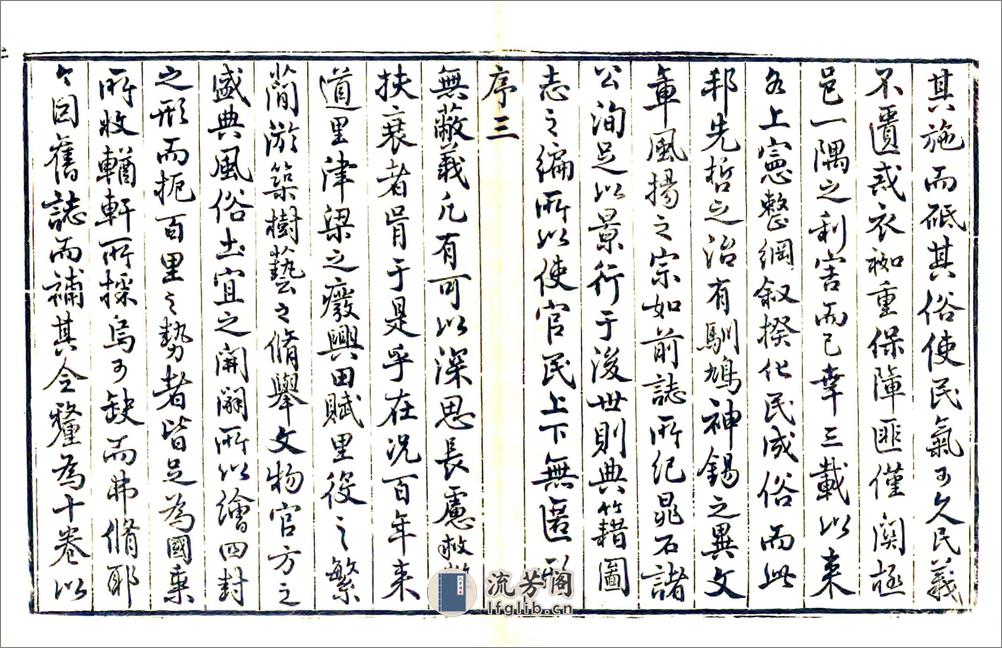 其施而砥其俗使民氣可久民義
不匱惑衣袽重保障匪僅関極
邑一隅之利害而已幸三載以来
各上憲整綱叙揆化民成俗而此
邦先哲之治有馴鳩神錫之異文
章風揚之宗如前誌所纪晁石諸
公洵足以景行于後世則典籍圖
志之編所以使官民上下無匿形
序三
無蔽義凡有可以深思長慮救
扶衰者胥于是乎在况百年来
道里津梁之廢興田賦里役之繁
簡游築樹藝之脩舉文物官方之
盛典風俗土宜之開闢所以繪四封
之形而扼百里之勢者皆足為國乗
所收輶軒所採烏可缺而弗脩耶
今因舊誌而補其令釐為十卷以
流芳阁
lfglib.cn